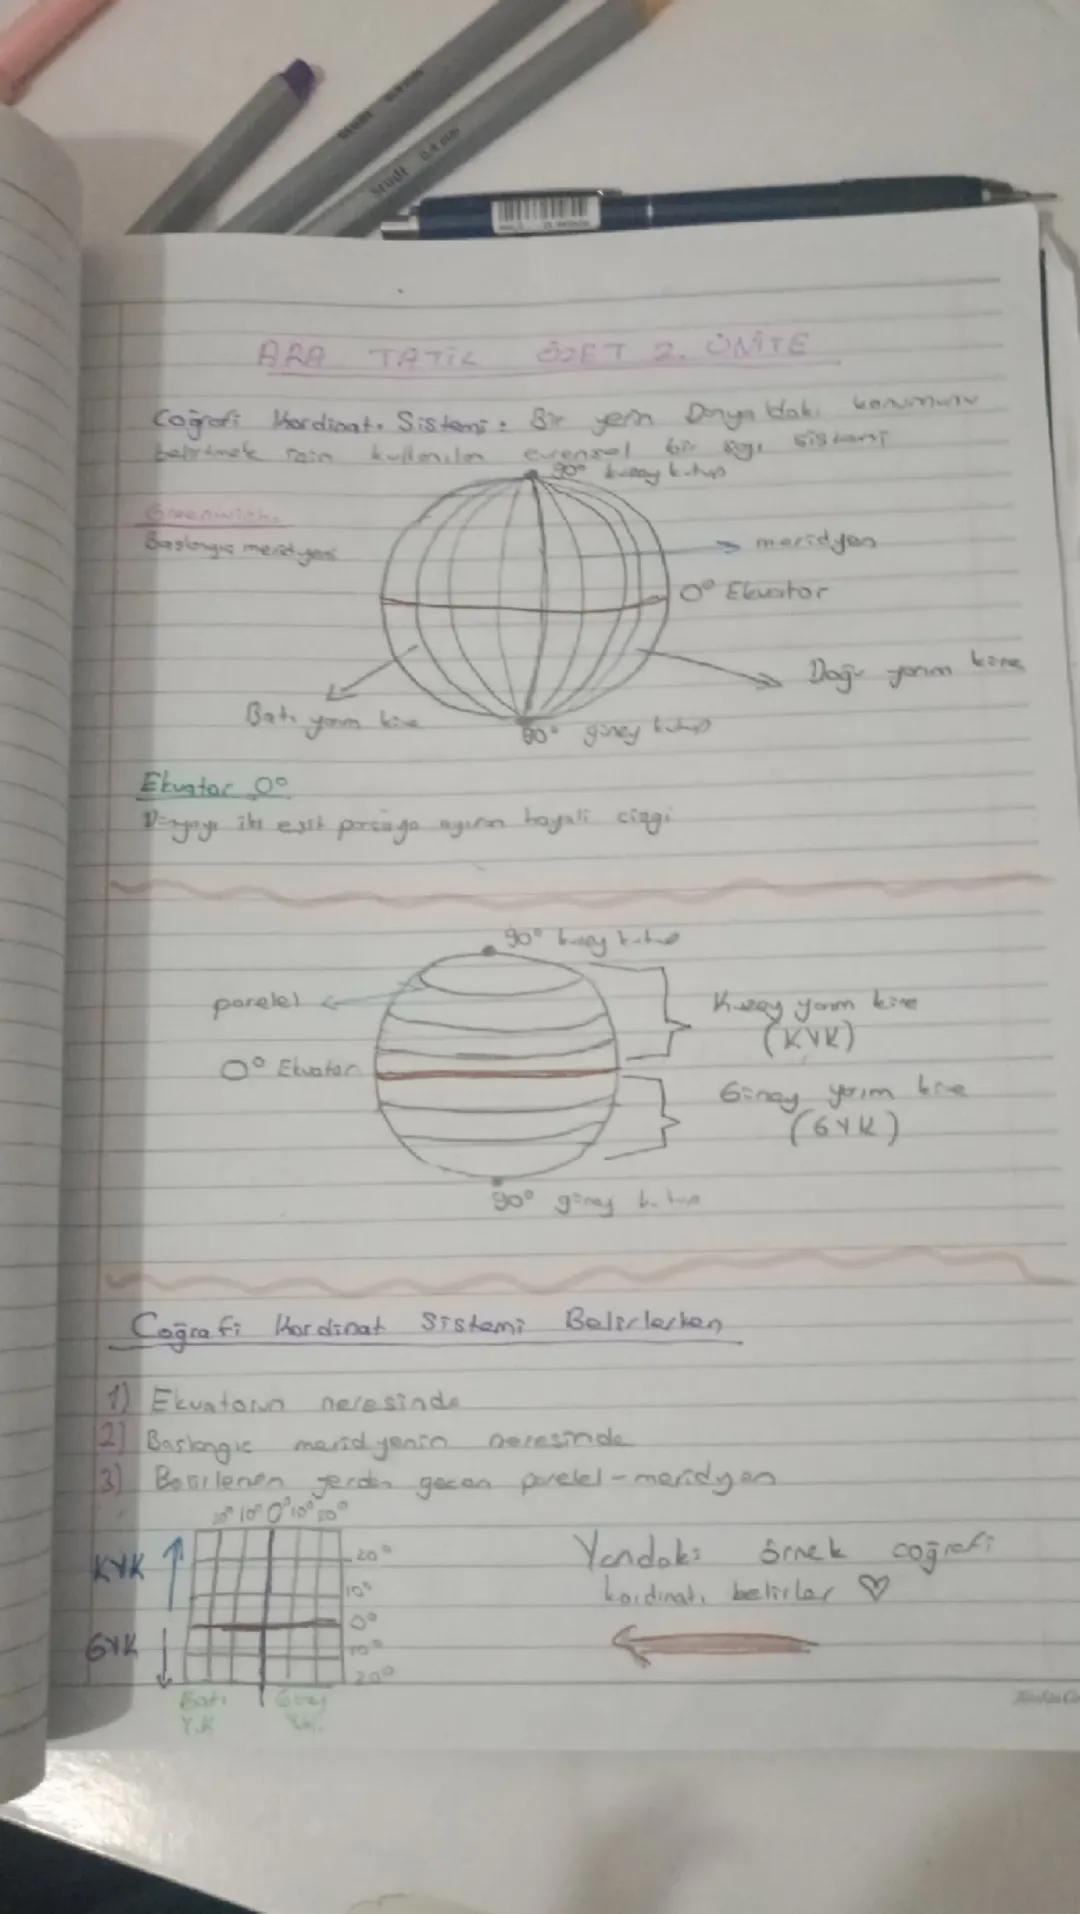 Studt
Studt 0.4 mm
ARA TATİL ÖZET 2. ÜNİTE
Coğrafi Kordinat. Sistemi: Bir yerin Dünya'daki konumunu
belirtmek için kullanılan evensel bir ağı sistemi
90° kuzey kutup
Greenwich.
Baslangıç meridyeni
meridyen
0° Ekvator
Doğu yarım küre
Batı yarım küre
90° güney kutup
Ekvator 0°
Dünyayı iki eşit parçaya ayıran hayali cizgi
90° kuzey kutup
parelel
Kuzey yarım küre
(KYK)
0° Ekvator
Güney yarım küre
(GYK)
90° güney kutup
Coğrafi Kordinat Sistemi Belirlerken
1) Ekvatorun neresinde
2) Baslangıc meridyenin neresinde
3) Belirlenen yerden gecen parelel-meridyen
20° 10° 0° 10° 20°
KYK
20°
10°
0°
GYK
10°
20°
Batı
Y.K
Yandaki örnek coğrafi
kordinatı belirler ♡